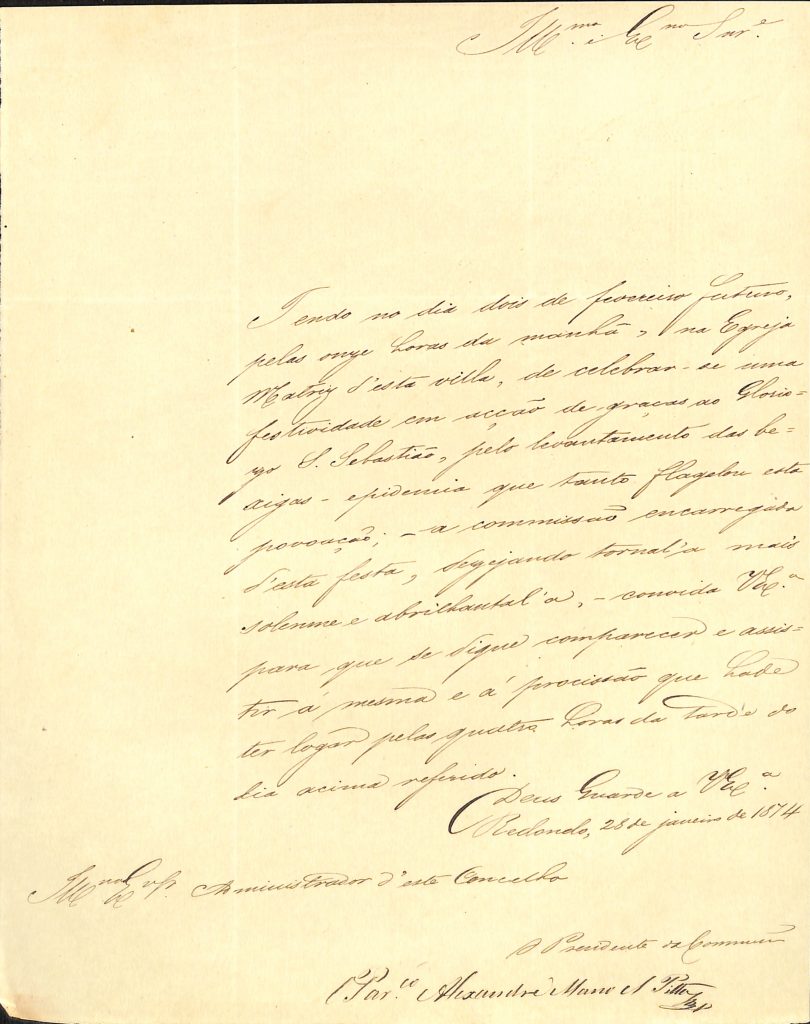 Illmo. e Exmo Snr.
Tendo no dia dois de fevereiro futuro,
pelas onze horas da manhã, na Egreja
Matriz d'esta villa, de celebrar-se uma
festividade em acção de graças ao Glorio=
zo S. Sebastião, pelo levantamento das be=
xigas - epidemia que tanto flagelou esta
povoação; - a commissão encarregada
d'esta festa, dezejando tornal'a mais
solemne e abrilhantal'a, - convida VExa.
para que se digne comparecer e assis=
tir á mesma e á procissão que hade
ter logar pelas quatro horas da tarde do
dia acima referido.
Deus Guarde a VExa.
Redondo, 28 de janeiro de 1874
Illmo Exmo Snr. Administrador d'este Concelho
O Presidente da Commissão
Alexandre Manoel